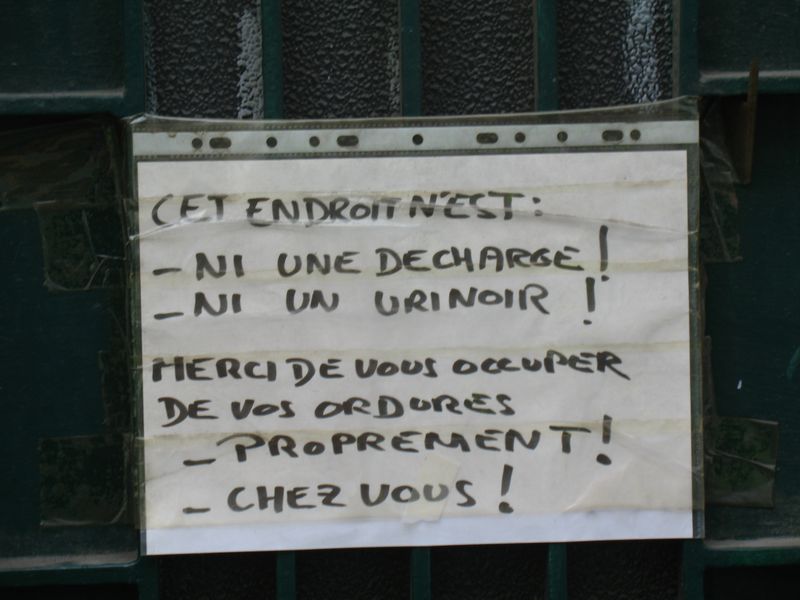 CET ENDROIT N'EST:
- NI UNE DECHARGE!
- NI UN URINOIR !
MERCI DE VOUS OCCUPER
DE VOS ORDURES
- PROPREMENT!
- CHEZ VOUS!